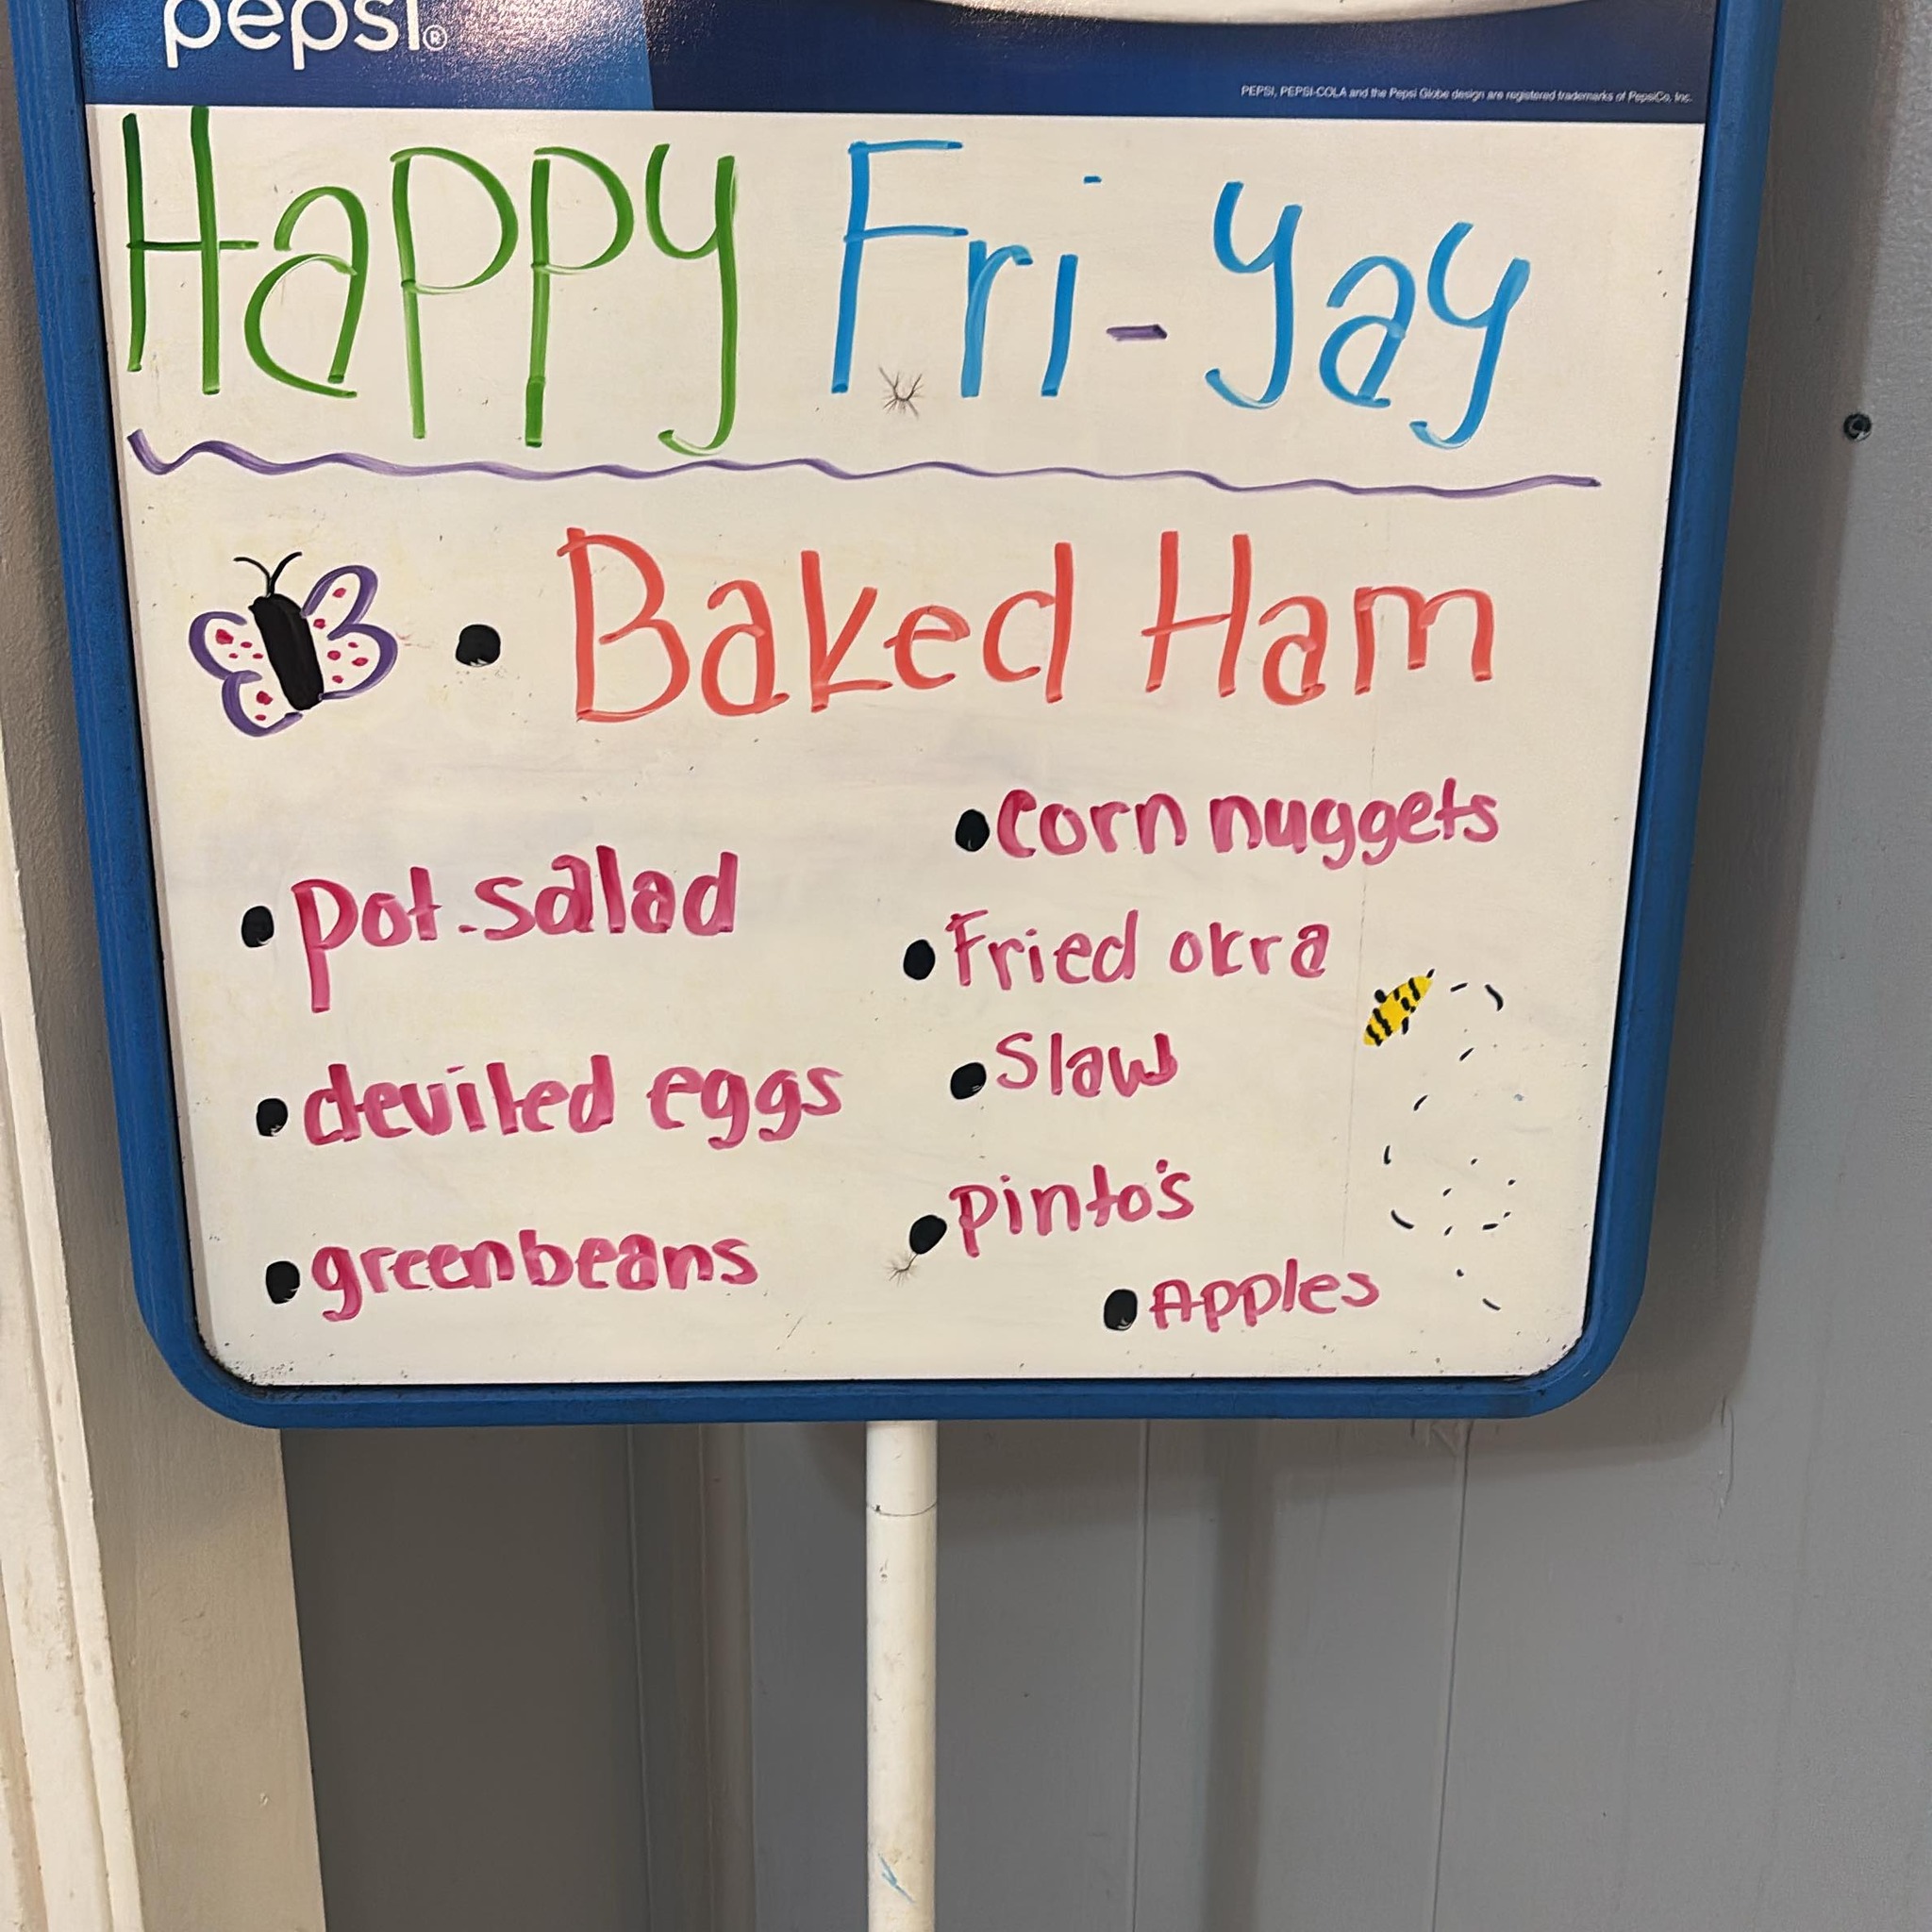 pepsi®
PEPSI, PEPSI-COLA and the Pepsi Globe design are registered trademarks of PepsiCo, Inc.
Happy Fri-yay
• Baked Ham
• pot. salad
• deviled eggs
• greenbeans
• corn nuggets
• Fried okra
• Slaw
• pinto's
• Apples